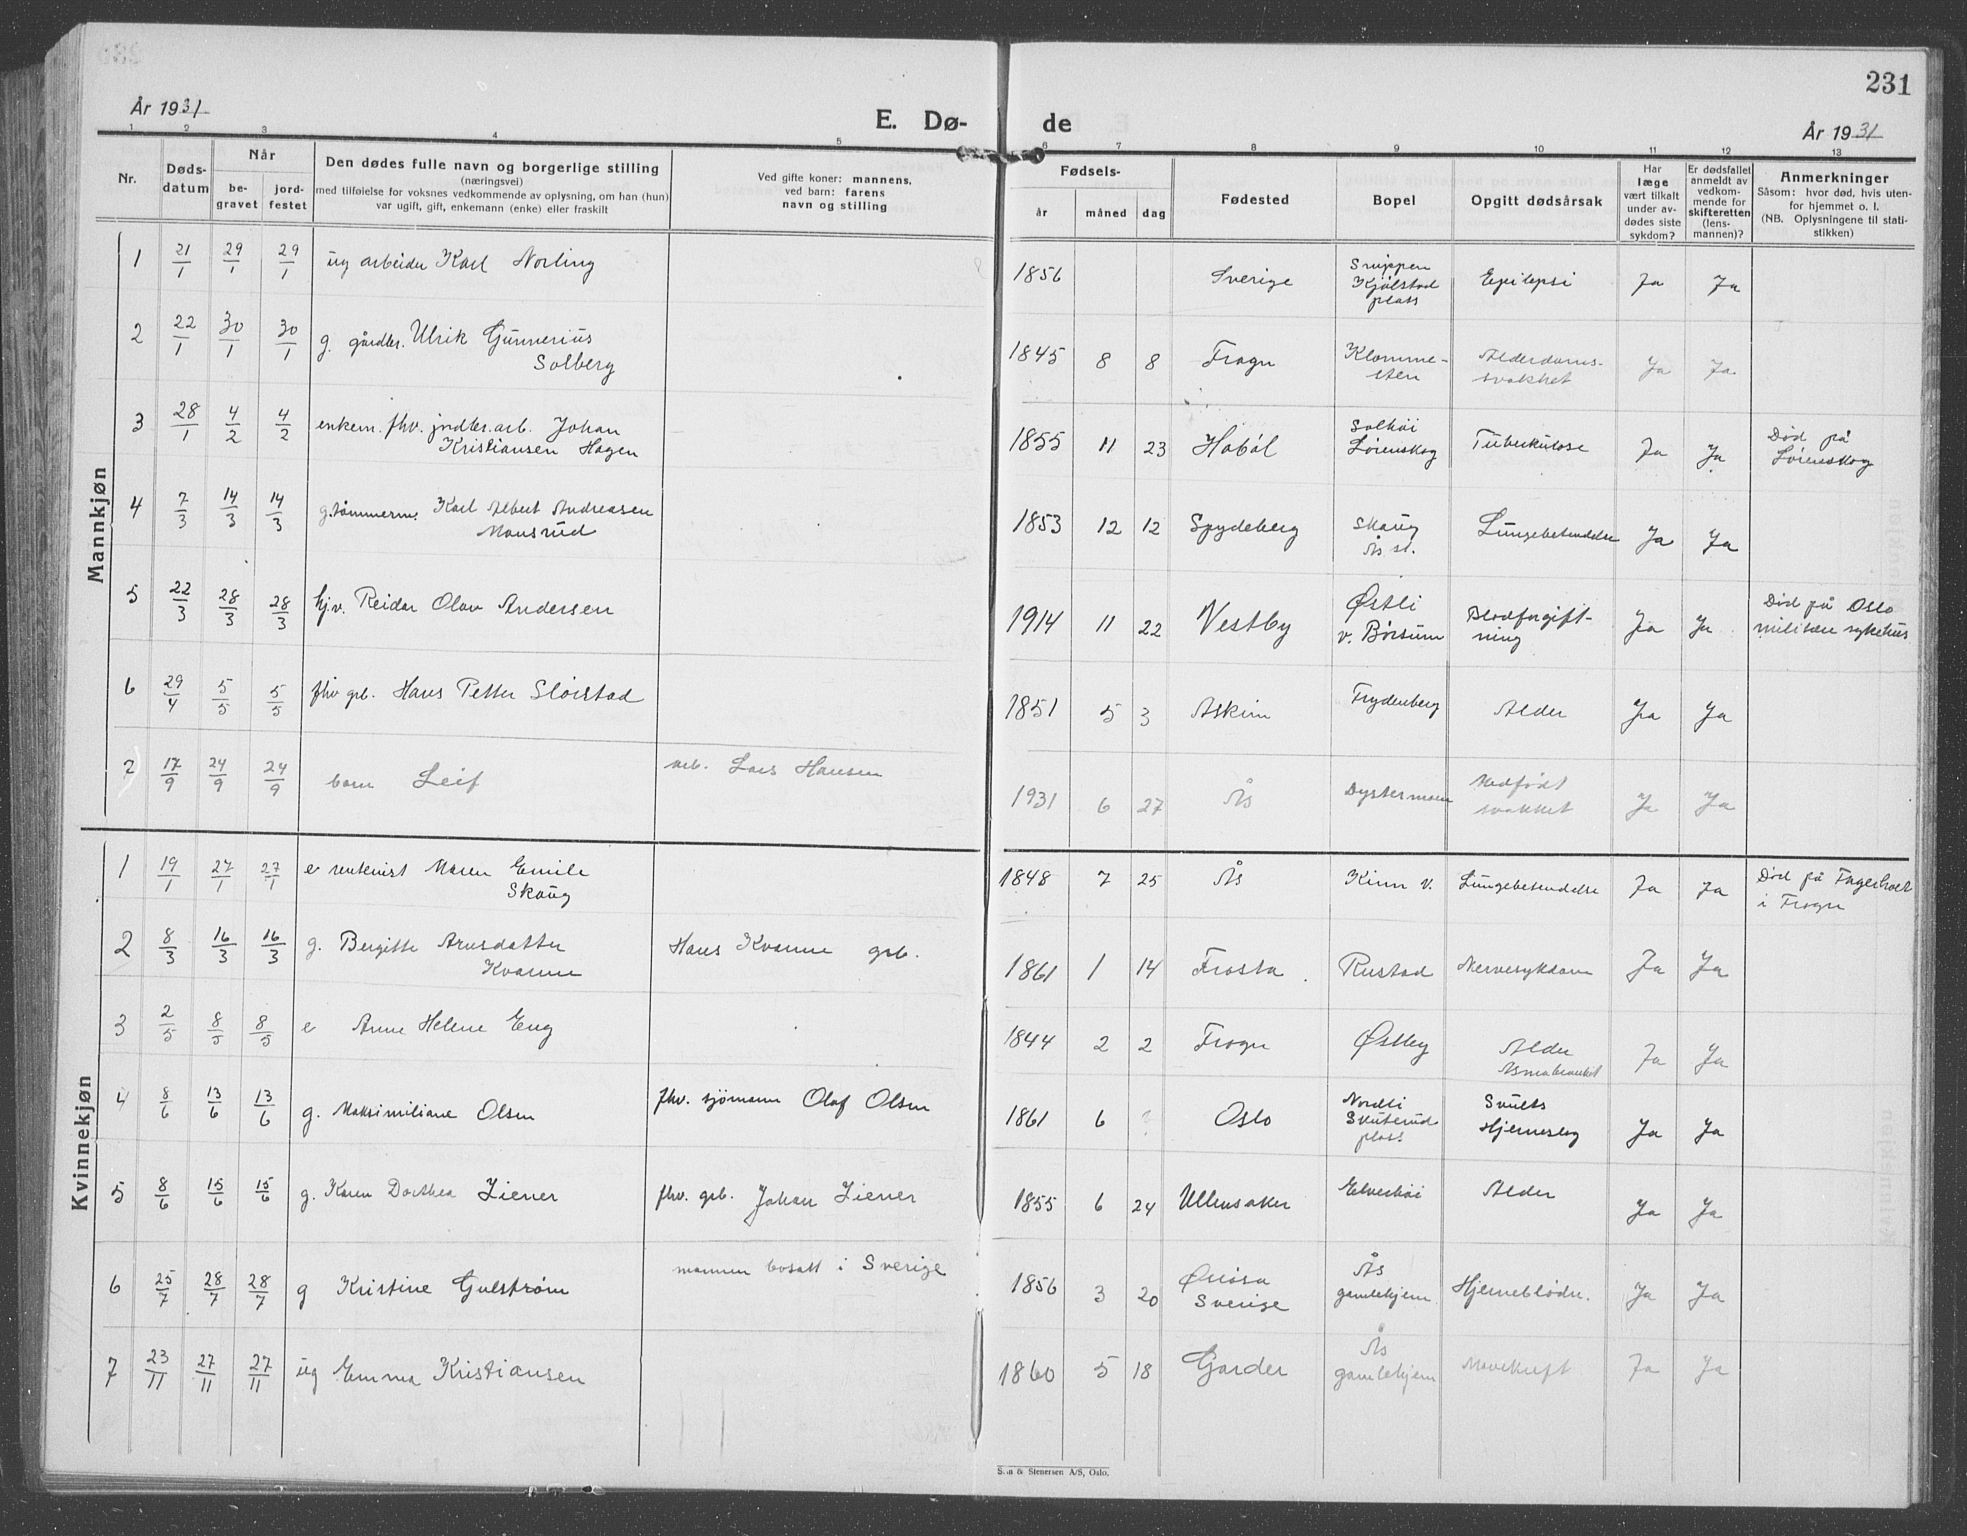 231
År 1931
E. Dø-
de
År 1931
1 2 3 4 5 6 7 8 9 10 11 12 13
Nr.
Døds-
datum
Når
be-
gravet
jord-
festet
Den dødes fulle navn og borgerlige stilling
(næringsvei)
med tilføielse for voksnes vedkommende av oplysning, om han (hun)
var ugift, gift, enkemann (enke) eller fraskilt
Ved gifte koner: mannens,
ved barn: farens
navn og stilling
Fødsels-
år
måned
dag
Fødested
Bopel
Opgitt dødsårsak
Har
læge
vært tilkalt
under av-
dødes siste
sykdom?
Er dødsfallet
anmeldt av
vedkom-
mende for
skifteretten
(lens-
mannen)?
Anmerkninger
Såsom: hvor død, hvis uten-
for hjemmet o. l.
(NB. Oplysningene til stati-
stikken)
Mannkjøn
1 21/1 29/1 29/1 ug arbeider Karl Norling 1856 Sverige Snippen Epilepsi Ja Ja
Kjølstad
plass
2 22/1 30/1 30/1 g. gårdbr. Ulrik Gunnerius 1845 8 8 Frogn Klomme- Alderdoms- Ja Ja
Solberg sten svakhet
3 28/1 4/2 4/2 enkem. fhv. jordbr. arb. Johan 1855 11 23 Hobøl Solhøi Tuberkulose Ja Ja Død på
Kristiansen Hagen Lørenskog Lørenskog
4 7/3 14/3 14/3 g. tømmerm. Karl Albert Andreasen 1853 12 12 Spydeberg Skaug Lungebetendelse Ja Ja
Monsrud Ås st.
5 22/3 28/3 28/3 hj.v. Reidar Olav Andersen 1914 11 22 Vestby Østli Blodforgift- Ja Ja Død på Oslo
v. Børsum ning militære sykehus
6 29/4 5/5 5/5 fhv grb. Hans Petter Sloistad 1851 5 3 Askim Frydenberg Alder Ja Ja
7 17/9 24/9 24/9 barn Leif arb. Lars Hansen 1931 6 27 Ås Dystermoen Medfødt Ja Ja
svakhet
Kvinnekjøn
1 19/1 27/1 27/1 e rentenist Maren Emile 1848 7 25 Ås Kinn v. Lungebetendelse Ja Ja Død på Fagerholt
Skaug i Frogn
2 8/3 16/3 16/3 g. Bergitte Arnsdatter Hans Kvamme grb. 1861 1 14 Frosta Rustad Nervesykdom Ja Ja
Kvamme
3 2/5 8/5 8/5 e Anne Helene Eng 1844 2 2 Frogn Østby Alder Ja Ja
4 8/6 13/6 13/6 g. Maksimiliane Olsen fhv. sjømann Olaf Olsen 1861 6 ? Oslo Nordli Svulst Ja Ja
Skuterud Hjerneslag
plass
5 8/6 15/6 15/6 g. Karen Dorthea Ziener fhv. grb. Johan Ziener 1855 6 24 Ullensaker Elverhøi Alder Ja Ja
6 25/7 28/7 28/7 g Kristine Gulstrøm mannen bosatt i Sverige 1856 3 20 Ås Hjerneblødn. Ja Ja
Sverige gamlehjem
7 23/11 27/11 27/11 ug Emma Kristiansen 1860 5 18 Garder Ås Mavekreft Ja Ja
gamlehjem
& Stenersen A/S, Oslo.